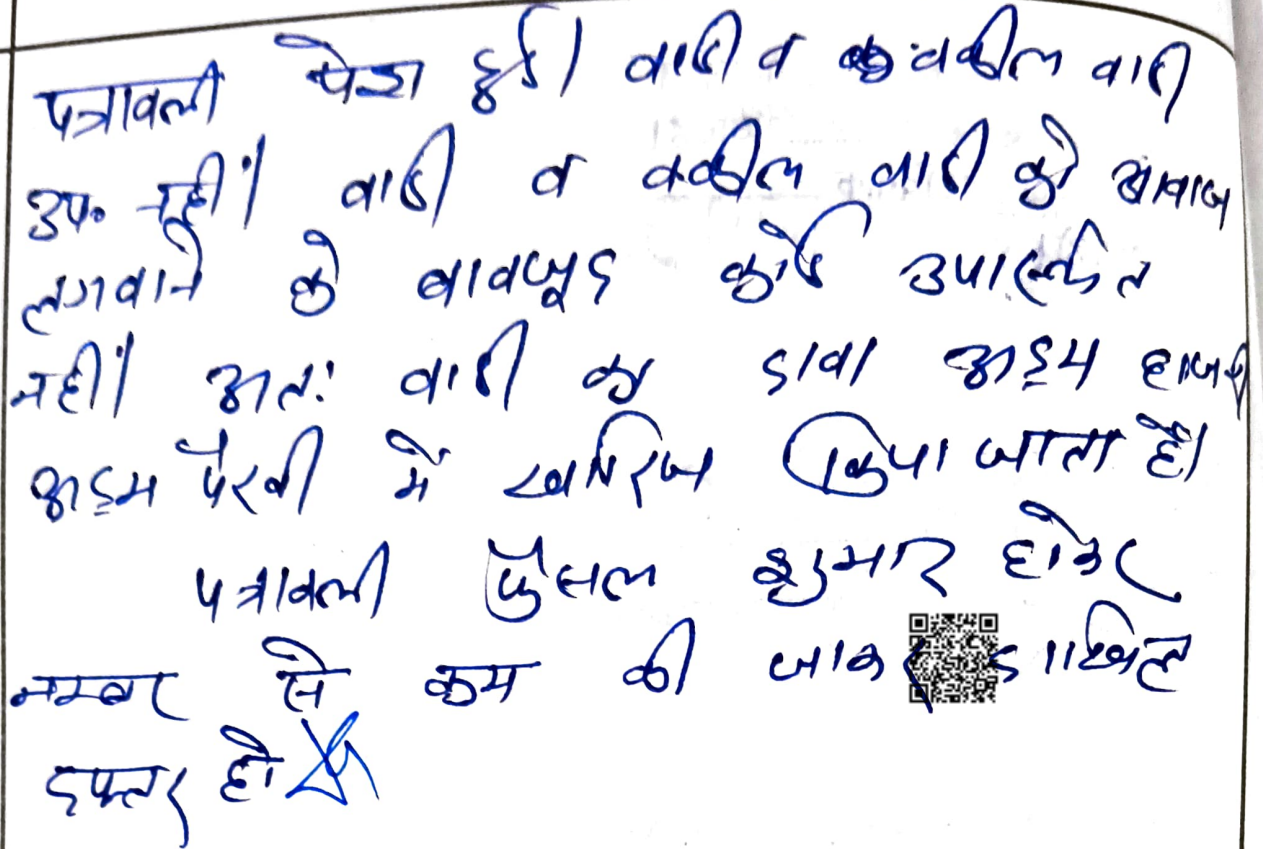 पत्रावली पेश हुई। वादी व वकील वादी
उप० नहीं। वादी व वकील वादी को आवाज
लगवाने के बावजूद कोई उपस्थित
नहीं। अतः वादी का दावा अदम हाजरी
अदम पैरवी में खारिज किया जाता है।
पत्रावली फैसल शुमार होकर
नम्बर से कम की जाकर दाखिल
दफ्तर हो